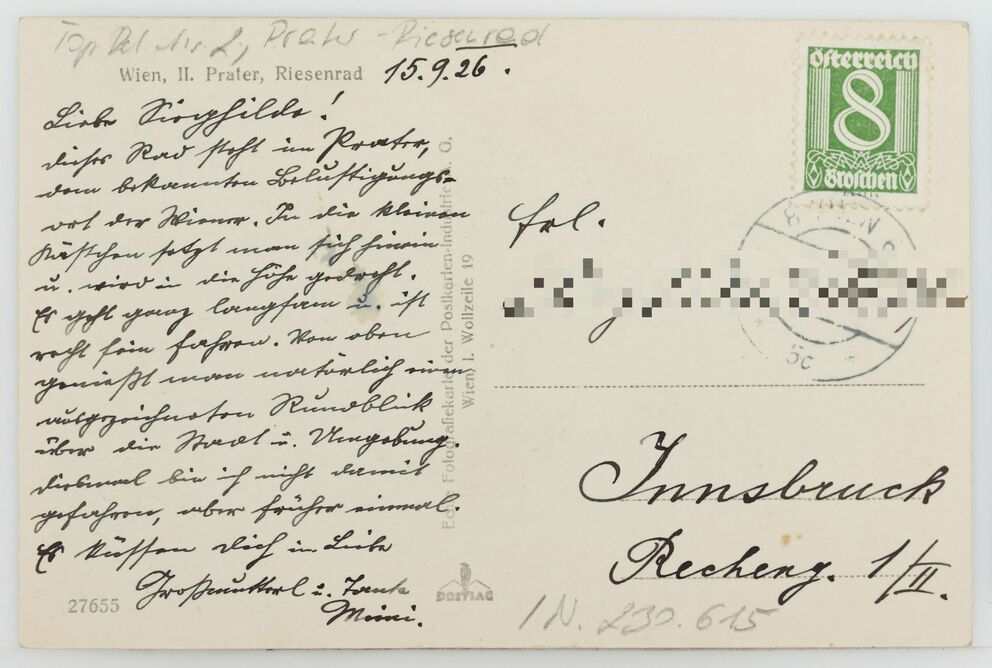 Top Bl. Nr. 2, Prater - Riesenrad
Wien, II. Prater, Riesenrad 15.9.26.
Liebe Sieghilde!
dieses Rad steht im Prater,
dem bekannten Belustigungs-
ort der Wiener. In die kleinen
Kästchen setzt man sich hinein
u. wird in die Höhe gedreht.
Es geht ganz langsam u. ist
recht fein fahren. Von oben
genießt man natürlich einen
ausgezeichneten Rundblick
über die Stadt u. Umgebung.
diesmal bin ich nicht damit
gefahren, aber früher einmal.
Es küssen dich in Liebe
Großmutterl u. Tante
Mimi.
27655
Echte Fotografiekarte der Postkarten-Industrie A. G.
Wien, I. Wollzeile 19
österreich
8
Groschen
8
N
5c
Frl.
Innsbruck
Recheng. 1/II.
IN. 230.615